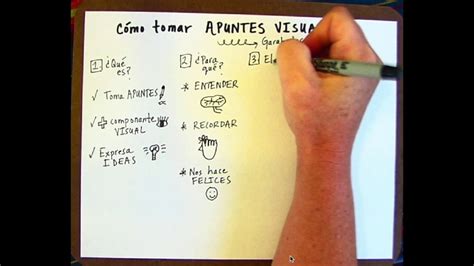 Cómo tomar APUNTES VISUA
Garabatos
1 ¿Qué es?
✓ Toma APUNTES
✓ + componente VISUAL
✓ Expresa IDEAS
2 ¿Para qué?
* ENTENDER
* RECORDAR
* Nos hace FELICES
3 El